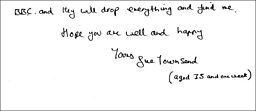 BBC. and they will drop everything and find me.
Hope you are well and happy
Yours Sue Townsend
(aged 75 and one week)